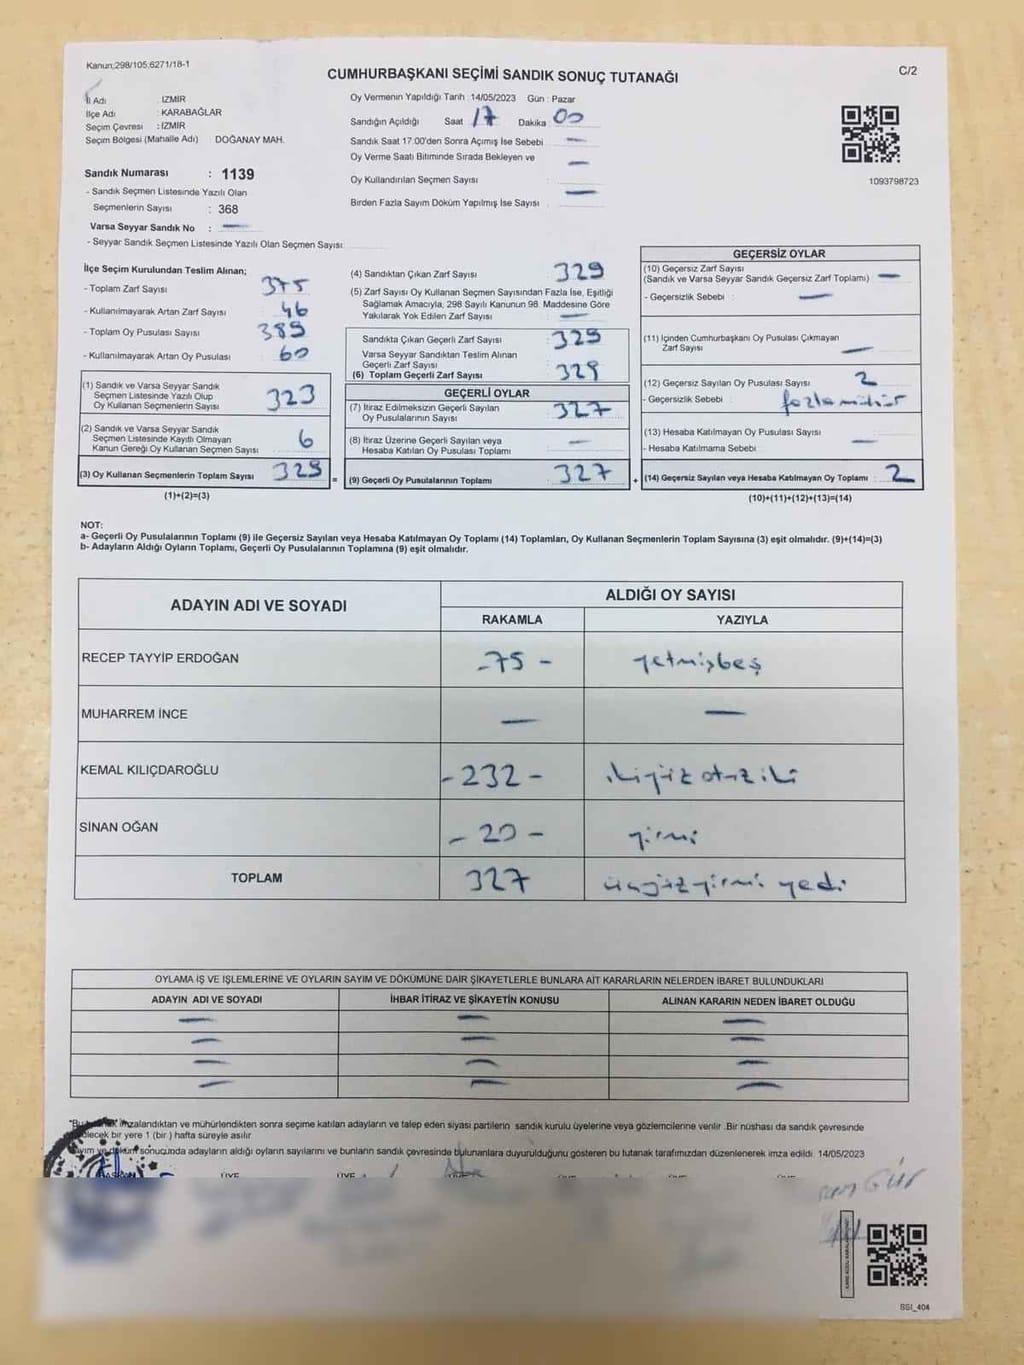 Kanun;298/105,6271/18-1
CUMHURBAŞKANI SEÇİMİ SANDIK SONUÇ TUTANAĞI
C/2
İl Adı : İZMİR
İlçe Adı : KARABAĞLAR
Seçim Çevresi : İZMİR
Seçim Bölgesi (Mahalle Adı) DOĞANAY MAH.
Sandık Numarası : 1139
- Sandık Seçmen Listesinde Yazılı Olan
Seçmenlerin Sayısı : 368
Varsa Seyyar Sandık No : —
- Seyyar Sandık Seçmen Listesinde Yazılı Olan Seçmen Sayısı:
Oy Vermenin Yapıldığı Tarih :14/05/2023 Gün : Pazar
Sandığın Açıldığı Saat 17 Dakika 00
Sandık Saat 17:00'den Sonra Açımış İse Sebebi —
Oy Verme Saati Bitiminde Sırada Bekleyen ve —
Oy Kullandırılan Seçmen Sayısı :
Birden Fazla Sayım Döküm Yapılmış İse Sayısı : —
1093798723
İlçe Seçim Kurulundan Teslim Alınan;
- Toplam Zarf Sayısı 375
- Kullanılmayarak Artan Zarf Sayısı 46
- Toplam Oy Pusulası Sayısı 389
- Kullanılmayarak Artan Oy Pusulası 60
(1) Sandık ve Varsa Seyyar Sandık
Seçmen Listesinde Yazılı Olup
Oy Kullanan Seçmenlerin Sayısı 323
(2) Sandık ve Varsa Seyyar Sandık
Seçmen Listesinde Kayıtlı Olmayan
Kanun Gereği Oy Kullanan Seçmen Sayısı 6
(3) Oy Kullanan Seçmenlerin Toplam Sayısı 329
(1)+(2)=(3)
(4) Sandıktan Çıkan Zarf Sayısı 329
(5) Zarf Sayısı Oy Kullanan Seçmen Sayısından Fazla İse, Eşitliği
Sağlamak Amacıyla, 298 Sayılı Kanunun 98. Maddesine Göre
Yakılarak Yok Edilen Zarf Sayısı —
Sandıkta Çıkan Geçerli Zarf Sayısı 329
Varsa Seyyar Sandıktan Teslim Alınan
Geçerli Zarf Sayısı
(6) Toplam Geçerli Zarf Sayısı 329
GEÇERLİ OYLAR
(7) İtiraz Edilmeksizin Geçerli Sayılan
Oy Pusulalarının Sayısı 327
(8) İtiraz Üzerine Geçerli Sayılan veya
Hesaba Katılan Oy Pusulası Toplamı —
= (9) Geçerli Oy Pusulalarının Toplamı 327
GEÇERSİZ OYLAR
(10) Geçersiz Zarf Sayısı
(Sandık ve Varsa Seyyar Sandık Geçersiz Zarf Toplamı) —
- Geçersizlik Sebebi : —
(11) İçinden Cumhurbaşkanı Oy Pusulası Çıkmayan
Zarf Sayısı —
(12) Geçersiz Sayılan Oy Pusulası Sayısı 2
- Geçersizlik Sebebi : fazla mühür
(13) Hesaba Katılmayan Oy Pusulası Sayısı —
- Hesaba Katılmama Sebebi :
+ (14) Geçersiz Sayılan veya Hesaba Katılmayan Oy Toplamı : 2
(10)+(11)+(12)+(13)=(14)
NOT:
a- Geçerli Oy Pusulalarının Toplamı (9) ile Geçersiz Sayılan veya Hesaba Katılmayan Oy Toplamı (14) Toplamları, Oy Kullanan Seçmenlerin Toplam Sayısına (3) eşit olmalıdır. (9)+(14)=(3)
b- Adayların Aldığı Oyların Toplamı, Geçerli Oy Pusulalarının Toplamına (9) eşit olmalıdır.
ADAYIN ADI VE SOYADI
ALDIĞI OY SAYISI
RAKAMLA YAZIYLA
RECEP TAYYİP ERDOĞAN -75- yetmişbeş
MUHARREM İNCE — —
KEMAL KILIÇDAROĞLU -232- ikiyüz otuz iki
SİNAN OĞAN -20- yirmi
TOPLAM 327 üçyüz yirmi yedi
OYLAMA İŞ VE İŞLEMLERİNE VE OYLARIN SAYIM VE DÖKÜMÜNE DAİR ŞİKAYETLERLE BUNLARA AİT KARARLARIN NELERDEN İBARET BULUNDUKLARI
ADAYIN ADI VE SOYADI İHBAR İTİRAZ VE ŞİKAYETİN KONUSU ALINAN KARARIN NEDEN İBARET OLDUĞU
— — —
— — —
— — —
— — —
imzalandıktan ve mühürlendikten sonra seçime katılan adayların ve talep eden siyasi partilerin sandık kurulu üyelerine veya gözlemcilerine verilir .Bir nüshası da sandık çevresinde
bir yere 1 (bir ) hafta süreyle asılır.
sonucunda adayların aldığı oyların sayılarını ve bunların sandık çevresinde bulunanlara duyurulduğunu gösteren bu tutanak tarafımızdan düzenlenerek imza edildi. 14/05/2023
BAŞKAN ÜYE ÜYE
SSI_404